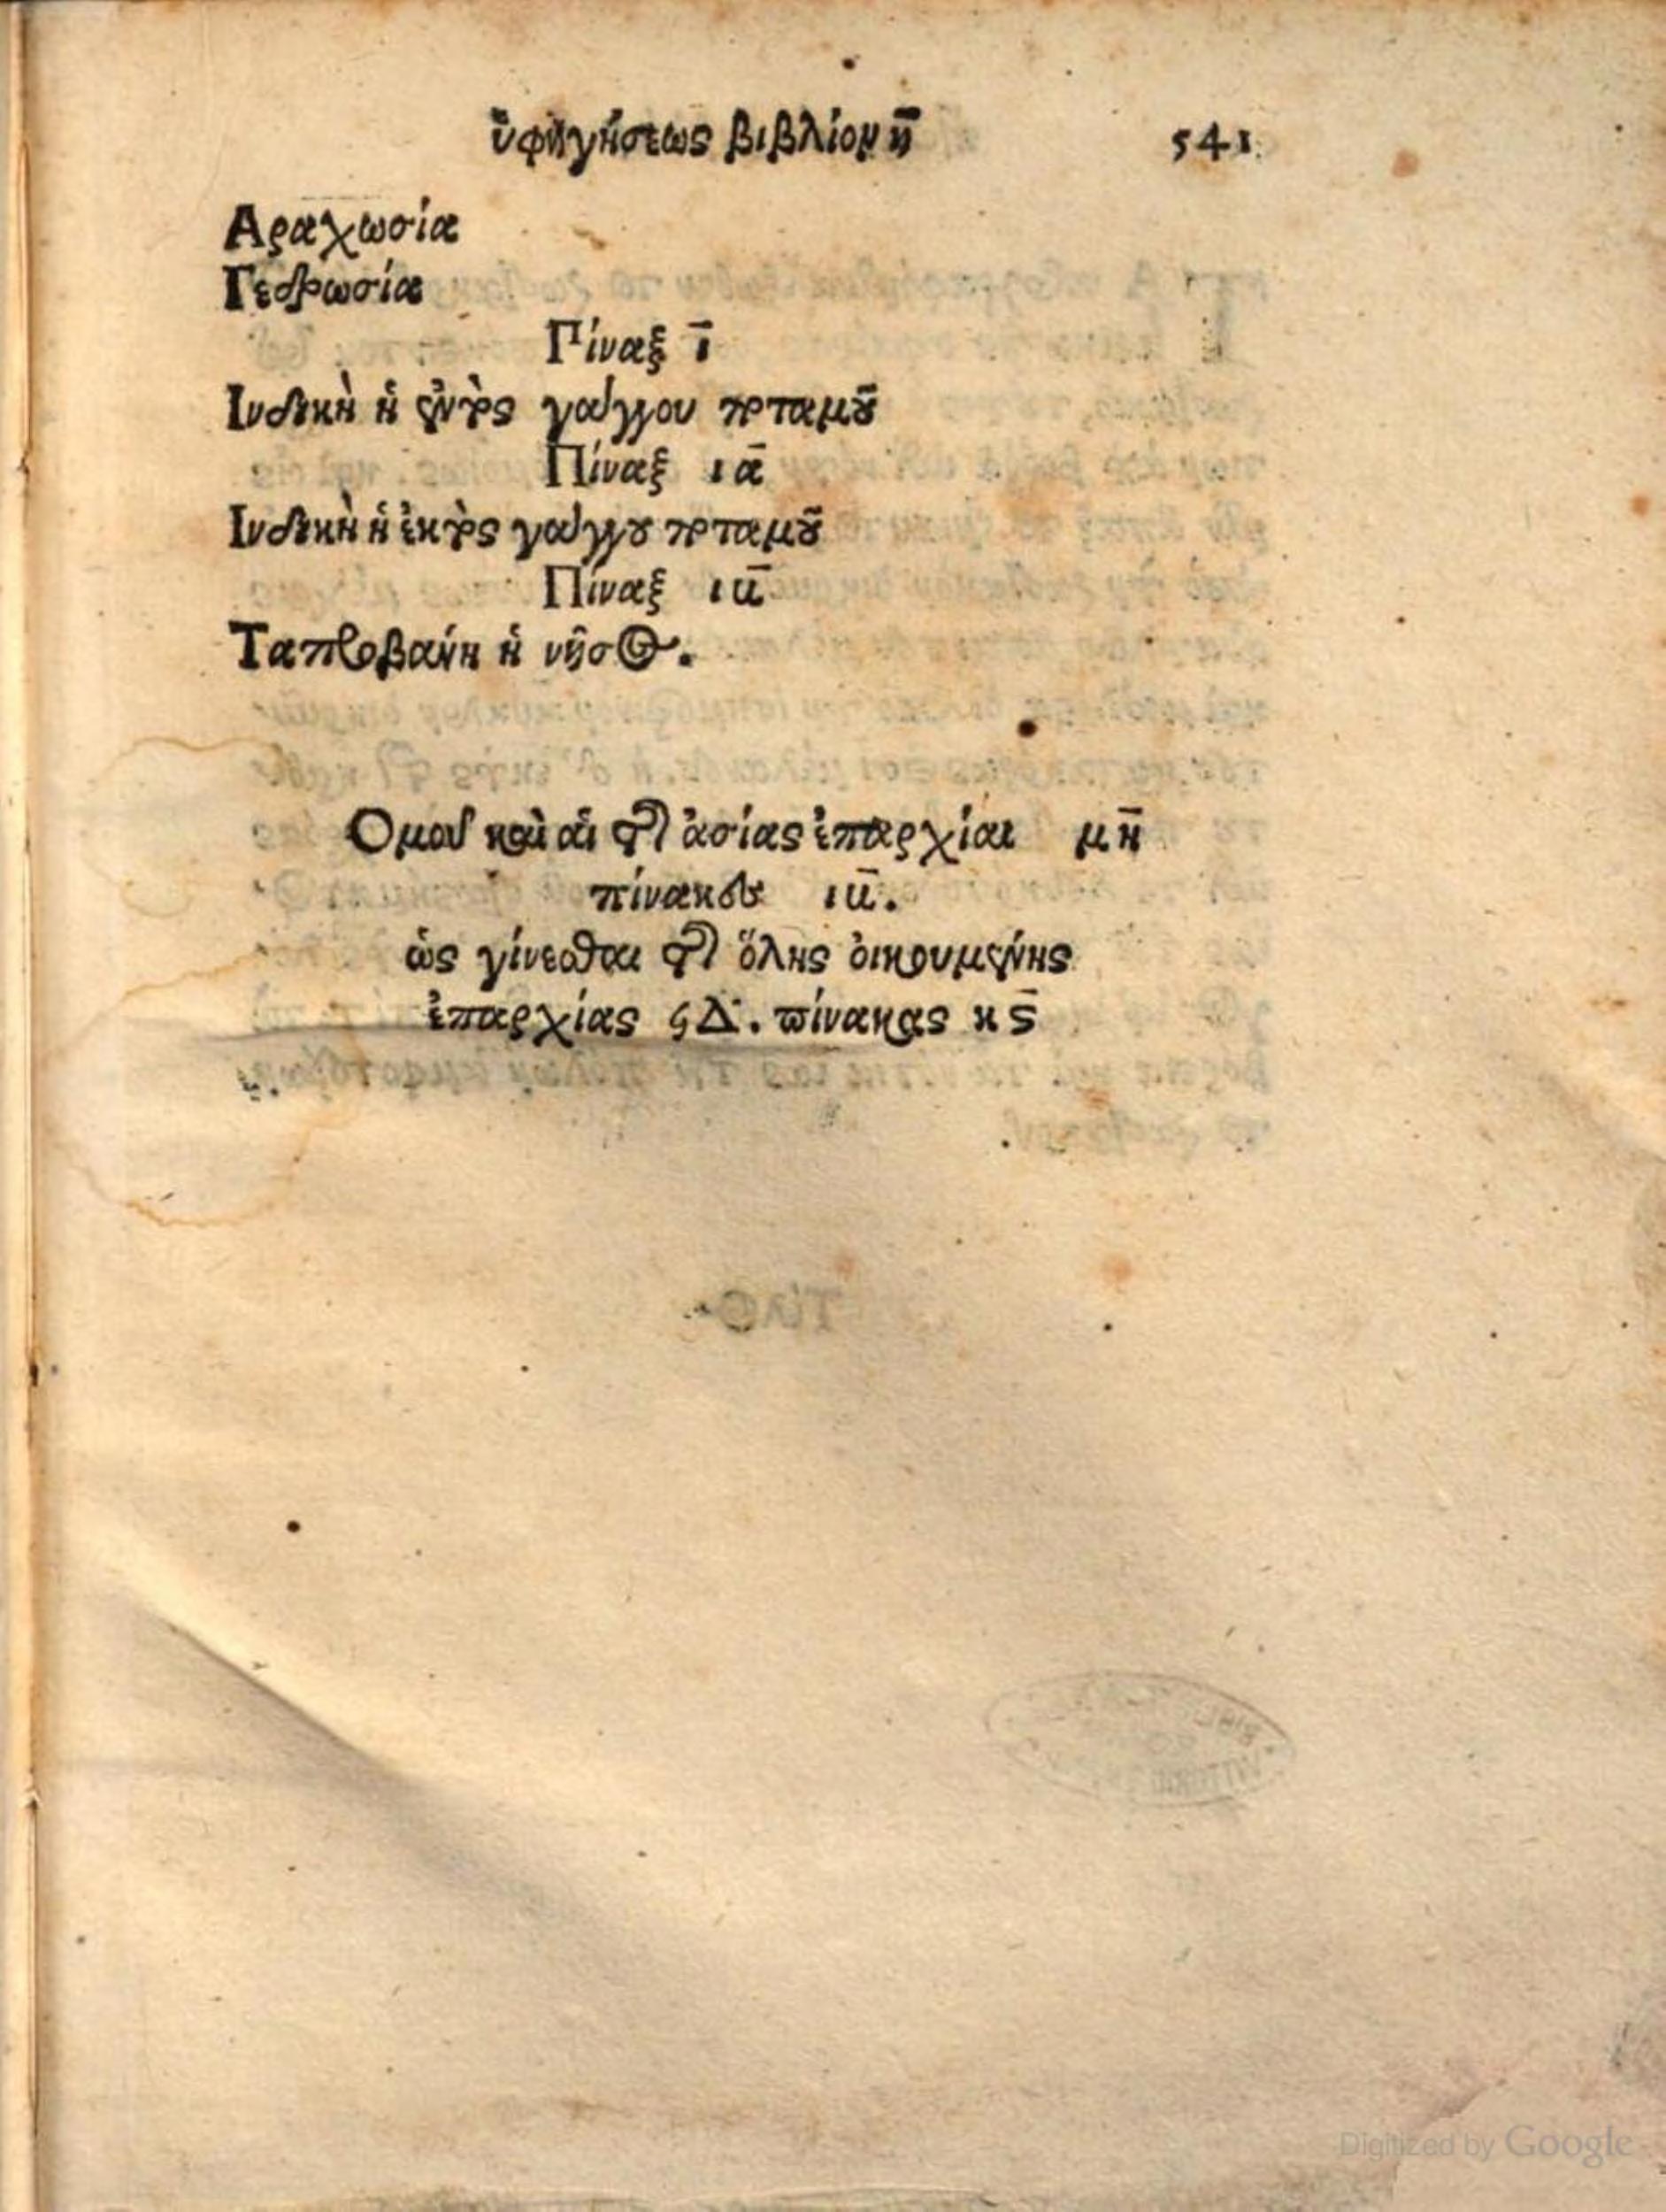 ὑφηγήσεως βιβλίον η̄ 541
Αραχωσία
Γεδρωσία
Πίναξ ῑ
Ινδικὴ ἡ ἐντὸς γάγγου ποταμοῦ
Πίναξ ιᾱ
Ινδικὴ ἡ ἐκτὸς γάγγου ποταμοῦ
Πίναξ ιβ̄
Ταπροβάνη ἡ νῆσος.
Ομοῦ καὶ αἱ τῆς ἀσίας ἐπαρχίαι μη̄
πίνακες ιβ̄.
ὡς γίνεσθαι τῆς ὅλης ὀικουμένης
ἐπαρχίας ϟΔ. πίνακας κϛ̄
Digitized by Google